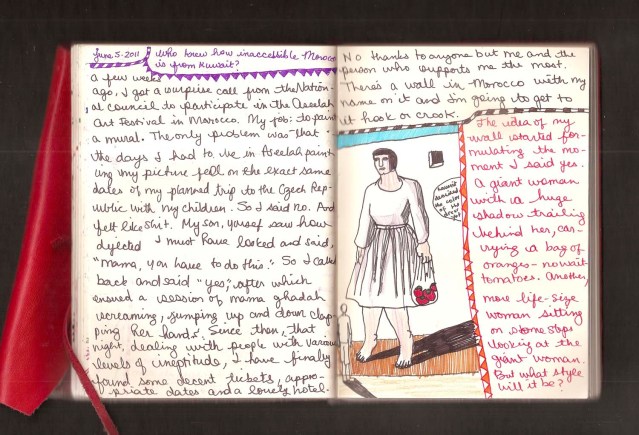 June. 5. 2011
Who knew how inaccessible Morocco
is from Kuwait?
A few weeks
ago, I got a surprise call from the Nation-
al council to participate in the Aseelah
Art Festival in Morocco. My job: to paint
a mural. The only problem was that
the days I had to be in Aseelah paint
ing my picture fell on the exact same
dates of my planned trip to the Czech Rep-
ublic with my children. So I said no. And
felt like shit. My son, yousef saw how
I must have looked and said,
"mama, you have to do this." So I called
back and said "yes," after which
ensued a session of mama ghadah
screaming, jumping up and down clap-
ping her hands. Since then, that
night, dealing with people with various
levels of ineptitude, I have finally
found some decent tickets, appro-
priate dates and a lovely hotel.
No thanks to anyone but me and the
person who supports me the most.
There's a wall in Morocco with my
name on it and I'm going to get to
it hook or crook.
The idea of my
wall started for-
mulating the mo-
ment I said yes.
A giant woman
with a huge
shadow trailing
behind her, car-
rying a bag of
oranges - no wait
tomatoes. Another,
more life-size
woman sitting
on stone steps
looking at the
giant woman.
But what style
will it be?
the color